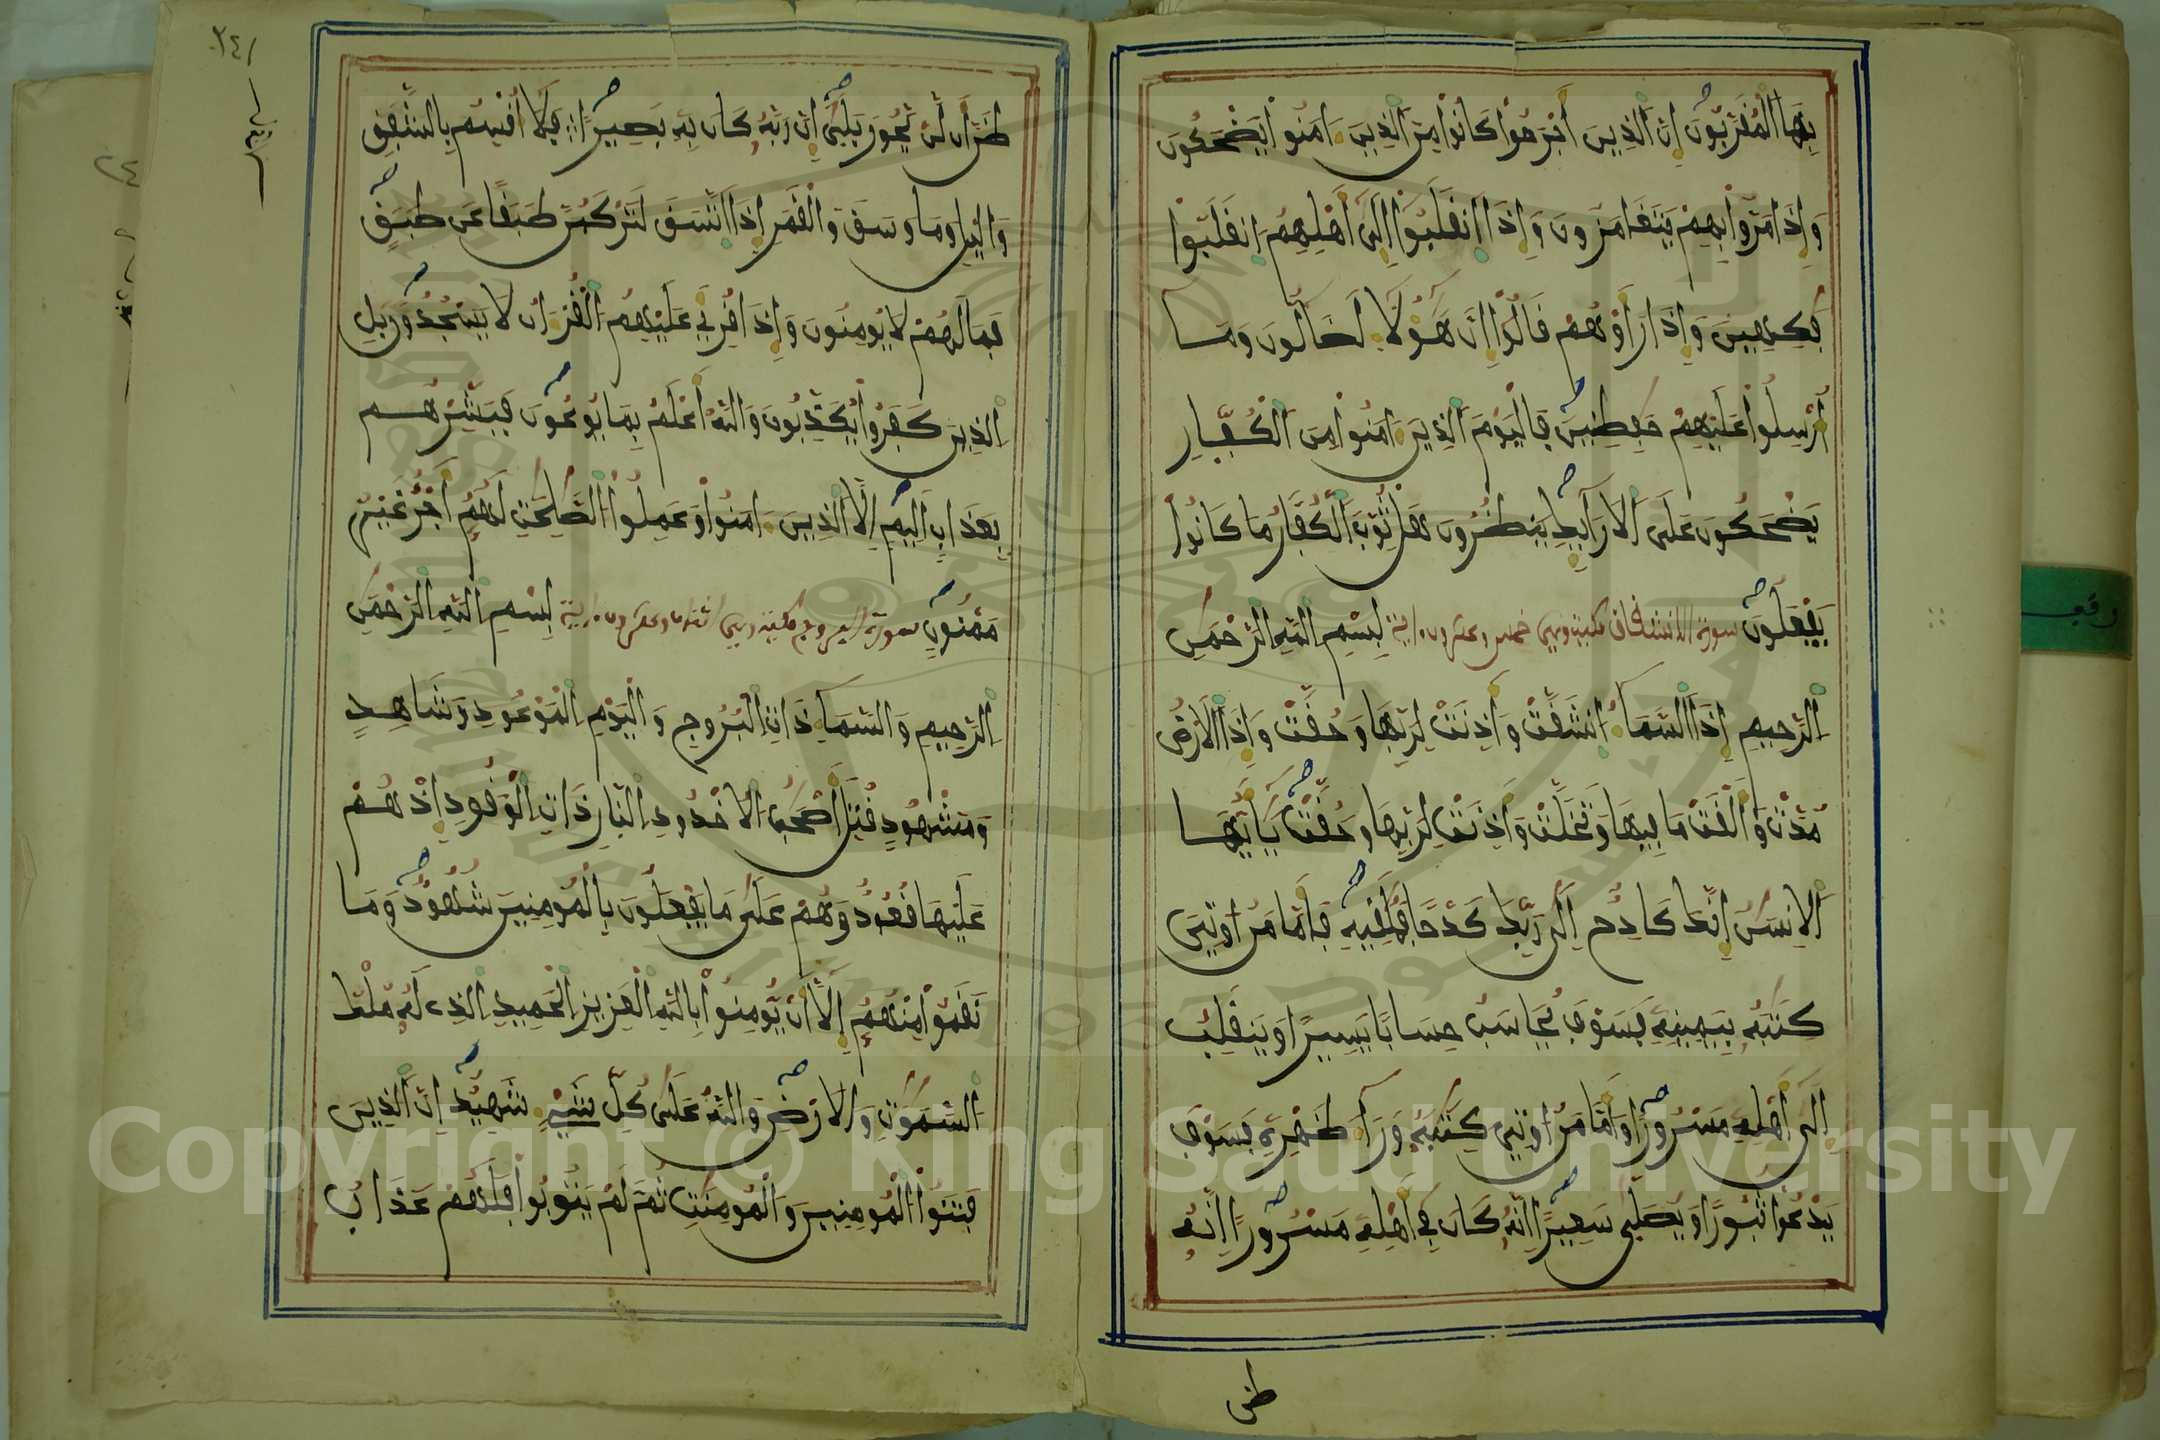 بِهَا الْمُقَرَّبُونَ إِنَّ الذِينَ أَجْرَمُوا كَانُوا مِنَ الذِينَ ءَامَنُوا يَضْحَكُونَ
وَإِذَا مَرُّوا بِهِمْ يَتَغَامَزُونَ وَإِذَا انقَلَبُوا إِلَىٰ أَهْلِهِمُ انقَلَبُوا
فَٰكِهِينَ وَإِذَا رَأَوْهُمْ قَالُوا إِنَّ هَٰؤُلَاءِ لَضَالُّونَ وَمَا
أُرْسِلُوا عَلَيْهِمْ حَٰفِظِينَ فَالْيَوْمَ الذِينَ ءَامَنُوا مِنَ الْكُفَّارِ
يَضْحَكُونَ عَلَى الْأَرَآئِكِ يَنظُرُونَ هَلْ ثُوِّبَ الْكُفَّارُ مَا كَانُوا
يَفْعَلُونَ سورة الانشقاق مكية وهي خمس وعشرون ءاية بِسْمِ اللهِ الرَّحْمَٰنِ
الرَّحِيمِ إِذَا السَّمَاءُ انشَقَّتْ وَأَذِنَتْ لِرَبِّهَا وَحُقَّتْ وَإِذَا الْأَرْضُ
مُدَّتْ وَأَلْقَتْ مَا فِيهَا وَتَخَلَّتْ وَأَذِنَتْ لِرَبِّهَا وَحُقَّتْ يَٰأَيُّهَا
الْإِنسَٰنُ إِنَّكَ كَادِحٌ إِلَىٰ رَبِّكَ كَدْحًا فَمُلَٰقِيهِ فَأَمَّا مَنْ أُوتِيَ
كِتَٰبَهُ بِيَمِينِهِ فَسَوْفَ يُحَاسَبُ حِسَابًا يَسِيرًا وَيَنقَلِبُ
إِلَىٰ أَهْلِهِ مَسْرُورًا وَأَمَّا مَنْ أُوتِيَ كِتَٰبَهُ وَرَاءَ ظَهْرِهِ فَسَوْفَ
يَدْعُوا ثُبُورًا وَيُصَلَّىٰ سَعِيرًا إِنَّهُ كَانَ فِي أَهْلِهِ مَسْرُورًا إِنَّهُ
ظن
٢٤١
ظَنَّ أَن لَّنْ يَحُورَ بَلَىٰ إِنَّ رَبَّهُ كَانَ بِهِ بَصِيرًا فَلَا أُقْسِمُ بِالشَّفَقِ
وَالَّيْلِ وَمَا وَسَقَ وَالْقَمَرِ إِذَا اتَّسَقَ لَتَرْكَبُنَّ طَبَقًا عَن طَبَقٍ
فَمَا لَهُمْ لَا يُومِنُونَ وَإِذَا قُرِئَ عَلَيْهِمُ الْقُرْءَانُ لَا يَسْجُدُونَ بَلِ
الذِينَ كَفَرُوا يُكَذِّبُونَ وَاللهُ أَعْلَمُ بِمَا يُوعُونَ فَبَشِّرْهُم
بِعَذَابٍ أَلِيمٍ إِلَّا الذِينَ ءَامَنُوا وَعَمِلُوا الصَّٰلِحَٰتِ لَهُمُ أَجْرٌ غَيْرُ
مَمْنُونٍ سورة البروج مكية وهي اثنان وعشرون ءاية بِسْمِ اللهِ الرَّحْمَٰنِ
الرَّحِيمِ وَالسَّمَاءِ ذَاتِ الْبُرُوجِ وَالْيَوْمِ الْمَوْعُودِ وَشَاهِدٍ
وَمَشْهُودٍ قُتِلَ أَصْحَٰبُ الْأُخْدُودِ النَّارِ ذَاتِ الْوَقُودِ إِذْ هُمْ
عَلَيْهَا قُعُودٌ وَهُمْ عَلَىٰ مَا يَفْعَلُونَ بِالْمُومِنِينَ شُهُودٌ وَمَا
نَقَمُوا مِنْهُمُ إِلَّا أَنْ يُّومِنُوا بِاللهِ الْعَزِيزِ الْحَمِيدِ الذِي لَهُ مُلْكُ
السَّمَٰوَٰتِ وَالْأَرْضِ وَاللهُ عَلَىٰ كُلِّ شَيْءٍ شَهِيدٌ إِنَّ الذِينَ
فَتَنُوا الْمُومِنِينَ وَالْمُومِنَٰتِ ثُمَّ لَمْ يَتُوبُوا فَلَهُمْ عَذَابُ
Copyright © King Saud University